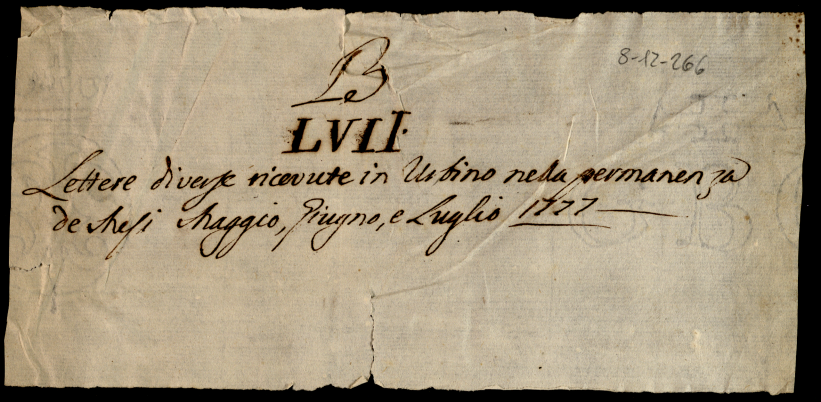 8-12-266
B
LVII.
Lettere diverse ricevute in Urbino nella permanenza
de Mesi Maggio, Giugno, e Luglio 1777